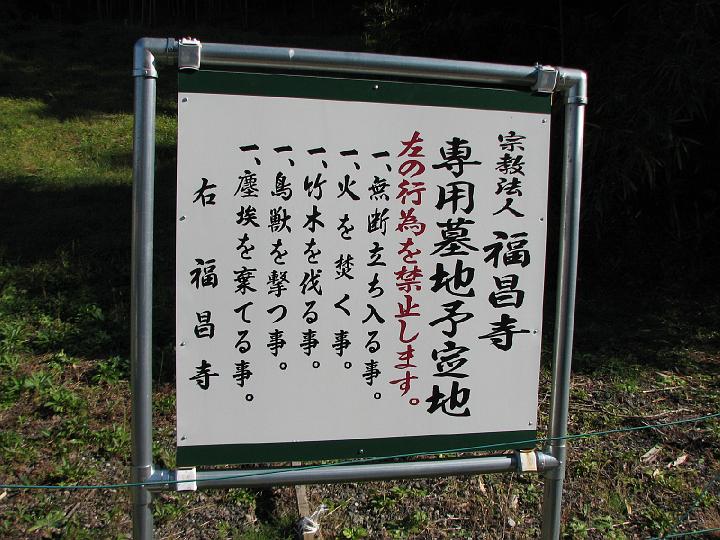 宗教法人 福昌寺
専用墓地予定地
左の行為を禁止します。
一、無断立ち入る事。
一、火を焚く事。
一、竹木を伐る事。
一、鳥獣を撃つ事。
一、塵埃を棄てる事。
右 福昌寺